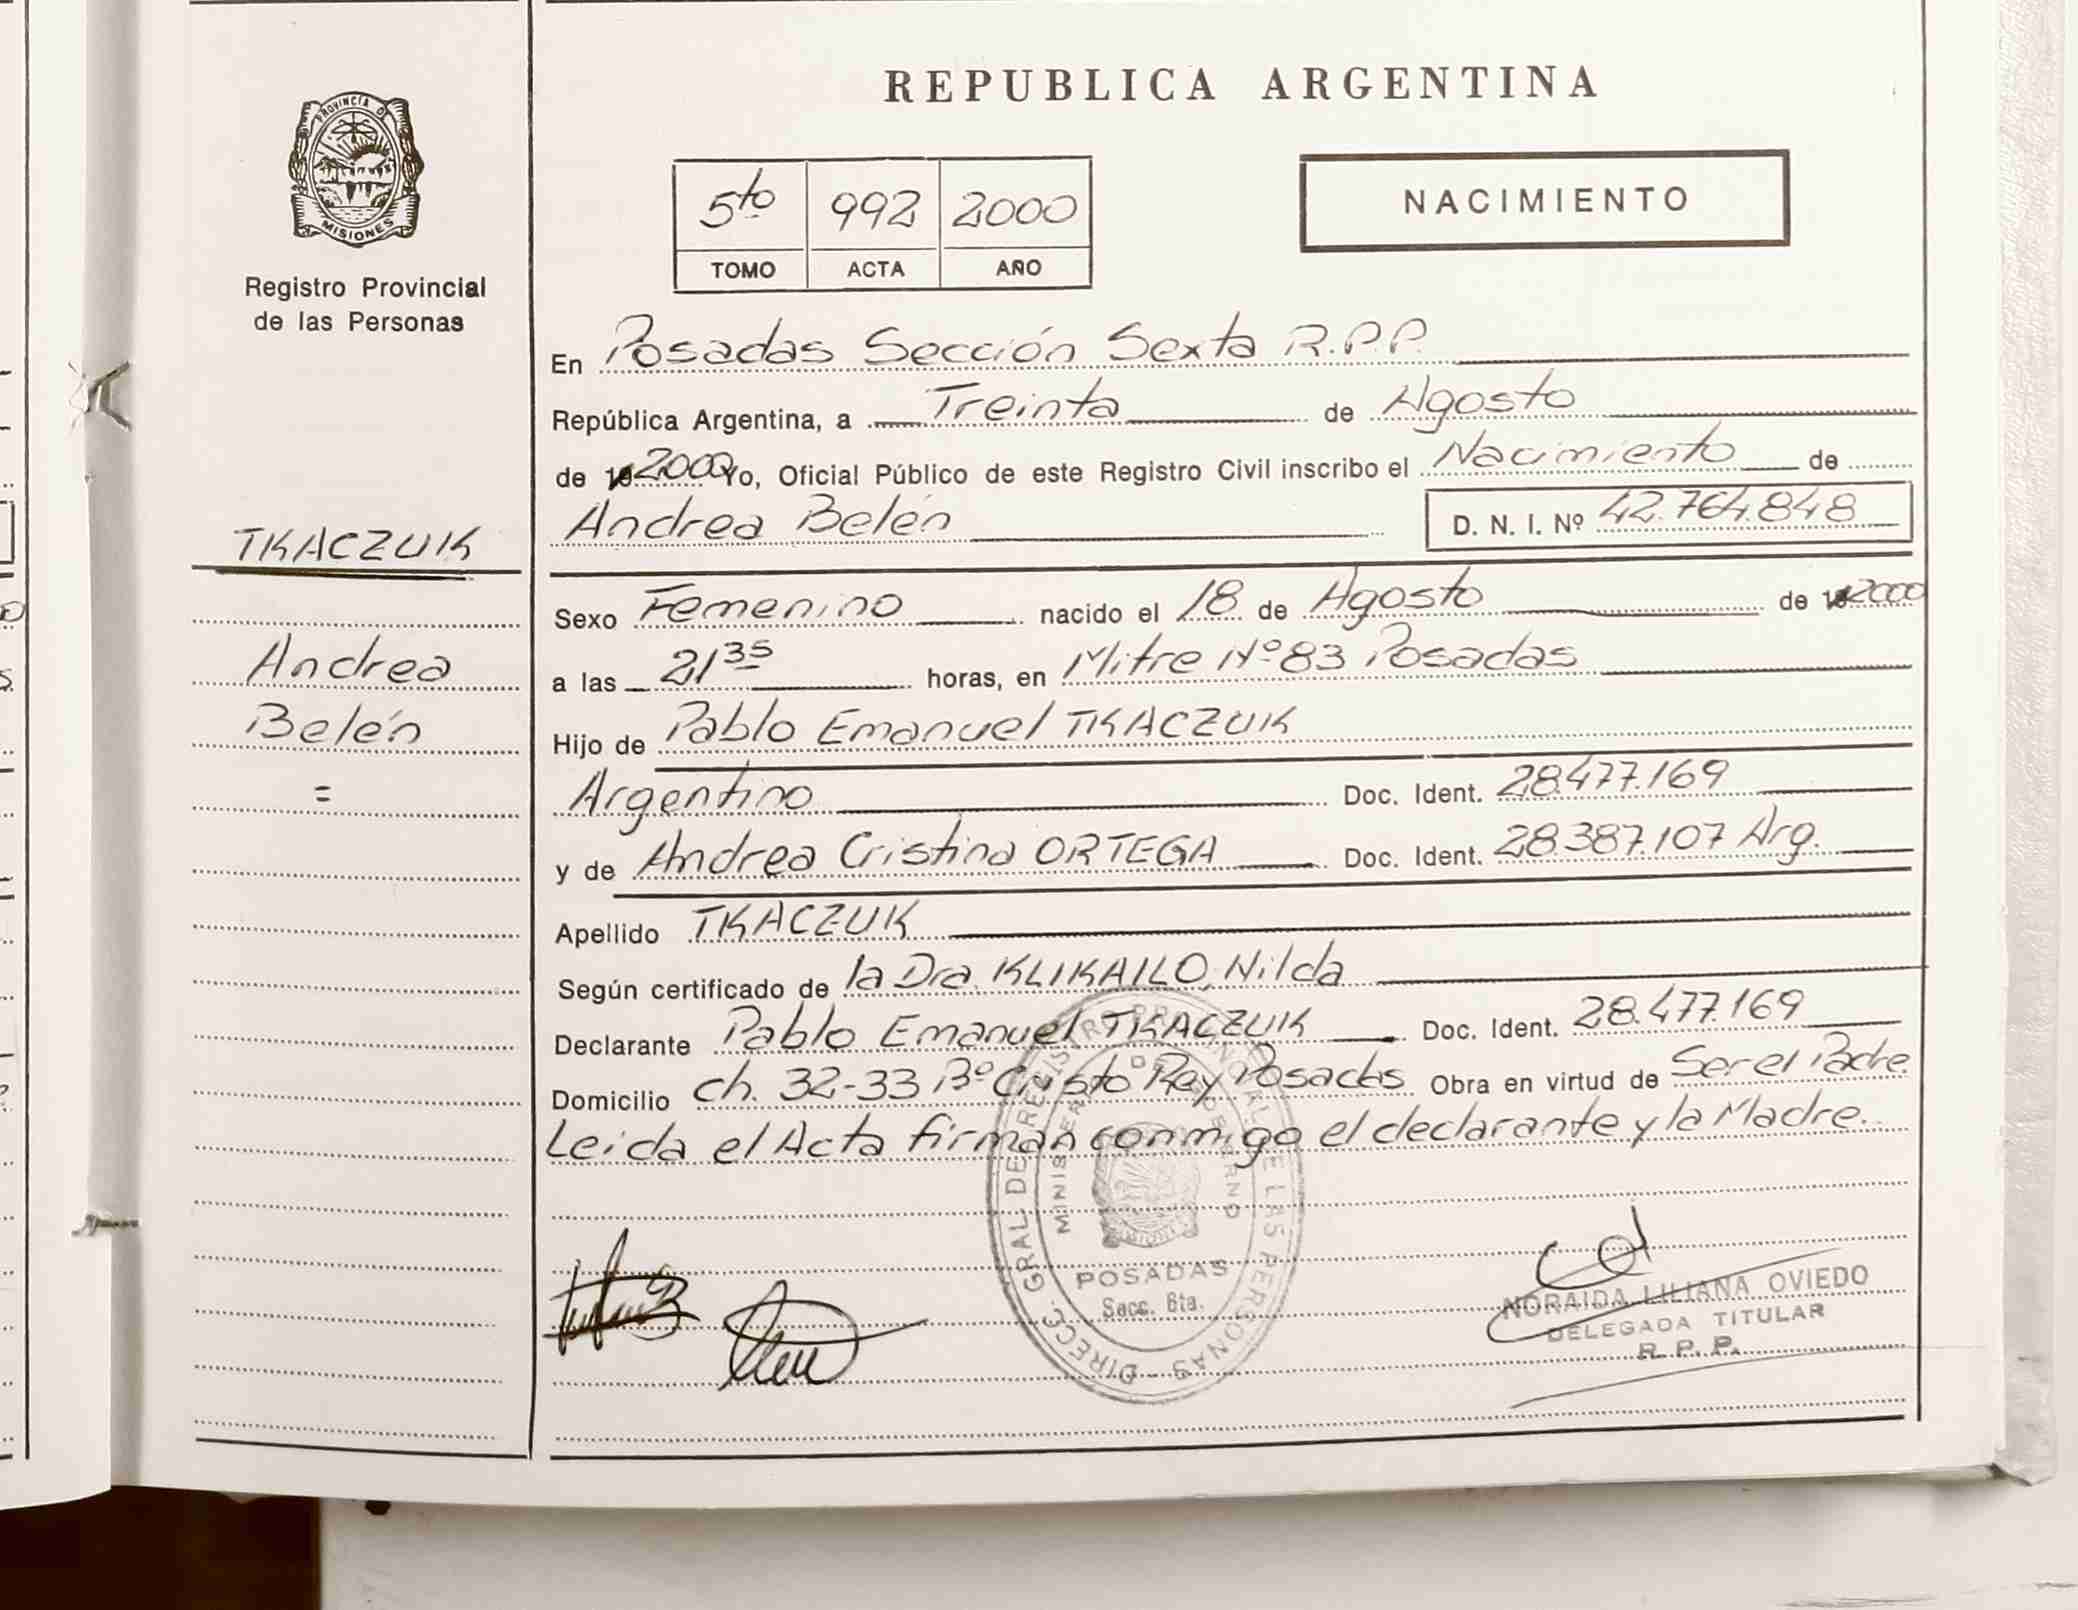 PROVINCIA DE
MISIONES
Registro Provincial
de las Personas
TKACZUK
Andrea
Belén
=
REPUBLICA ARGENTINA
5to 992 2000
TOMO ACTA AÑO
NACIMIENTO
En Posadas Sección Sexta R.P.P.
República Argentina, a Treinta de Agosto
de 2000 Yo, Oficial Público de este Registro Civil inscribo el Nacimiento de
Andrea Belén D. N. I. Nº 42.764.848
Sexo Femenino nacido el 18 de Agosto de 2000
a las 21 35 horas, en Mitre Nº 83 Posadas
Hijo de Pablo Emanuel TKACZUK
Argentino Doc. Ident. 28.477.169
y de Andrea Cristina ORTEGA Doc. Ident. 28.387.107 Arg.
Apellido TKACZUK
Según certificado de la Dra. KLIKAILO, Nilda
Declarante Pablo Emanuel TKACZUK Doc. Ident. 28.477.169
Domicilio ch. 32-33 Bº Cristo Rey Posadas Obra en virtud de Ser el Padre
Leida el Acta firman conmigo el declarante y la Madre.
DIRECC. GRAL DE REGISTRO PROVINCIAL DE LAS PERSONAS
MINISTERIO DE GOBIERNO
MISIONES
POSADAS
Secc. 6ta.
NORAIDA LILIANA OVIEDO
DELEGADA TITULAR
R. P. P.